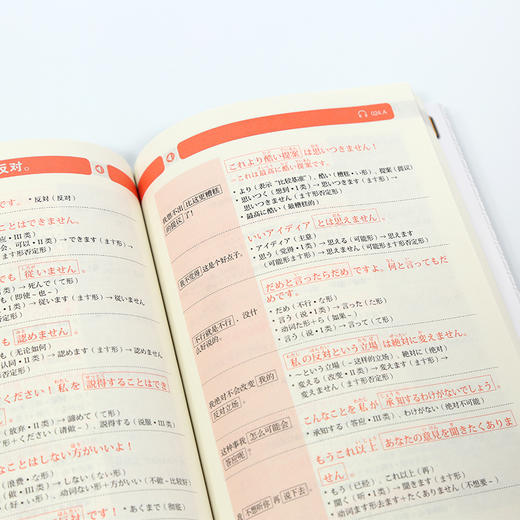 反对。
④
・反対（反对）
ことはできません。
会、可以・II类）→ できます（ます形）
ます形否定形）
も 従いません。
）→ 死んで（て形）
も（即使～也～）
・I类）→ 従います（ます形）→ 従いません
形否定形）
も 認めません。
も（无论如何）
认同・II类）→ 認めます（ます形）→ 認めません
形否定形）
ください！私を 説得することはでき
（放弃・II类）→ 諦めて（て形）
形＋ください（请做～）、説得する（说服・III类）
なことはしない方がいいよ！
（浪费・な形）
（做・III类）→ しない（ない形）
形）→ 动词ない形＋方がいい（不做～比较好）
・あくまで（彻底）
④
024.A
これより酷い提案 は思いつきません！
＝これは最高に酷い提案です。
我想不出 比这更糟糕的提议 了！
・より（表示“比较基准”）、酷い（糟糕・い形）、提案（提议）
・思いつく（想到・I类）→ 思いつきます（ます形）→
思いつきません（ます形否定形）
・最高に酷い（最糟糕的）
いいアイディア とは思えません。
我不觉得 这是个好点子。
・アイディア（主意）
・思う（觉得・I类）→ 思える（可能形）→ 思えます
（可能形ます形）→ 思えません（可能形ます形否定形）
だめと言ったらだめ ですよ。何と言ってもだめです。
不行就是不行，没什么好说的。
・だめ（不行・な形）
・言う（说・I类）→ 言った（た形）
・动词た形＋ら（如果～）
・言う（说・I类）→ 言って（て形）
私の反対という立場 は絶対に変えません。
我绝对不会改变 我的反对立场。
・～という立場（～这样的立场）、絶対に（绝对）
・変える（改变・II类）→ 変えます（ます形）→ 変えません
（ます形否定形）
こんなことを私が 承知するわけがないでしょう。
这种事我 怎么可能会答应呢。
・承知する（答应・III类）、わけがない（绝对不可能）
もうこれ以上 あなたの意見を聞きたくありません。
我 不想听你 再 说下去。
・もう（已经）、これ以上（再）
・聞く（听・I类）→ 聞きます（ます形）
・动词ます形去ます＋たくありません（不想要～）